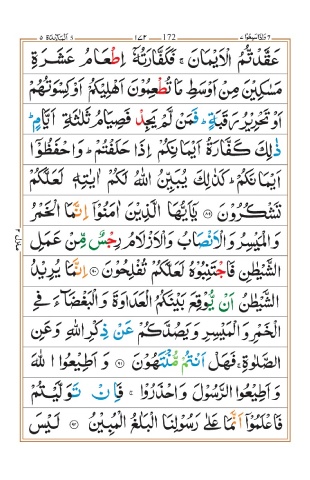 واذا سمعوا ٧ ١٧٣ 172 المآئدة ٥
عَقَّدْتُّمُ الْاَيْمَانَ ۚ فَكَفَّارَتُهٗۤ اِطْعَامُ عَشَرَةِ
مَسٰكِيْنَ مِنْ اَوْسَطِ مَا تُطْعِمُوْنَ اَهْلِيْكُمْ اَوْ كِسْوَتُهُمْ
اَوْ تَحْرِيْرُ رَقَبَةٍ ؕ فَمَنْ لَّمْ يَجِدْ فَصِيَامُ ثَلٰثَةِ اَيَّامٍ ؕ
ذٰلِكَ كَفَّارَةُ اَيْمَانِكُمْ اِذَا حَلَفْتُمْ ؕ وَاحْفَظُوْۤا
اَيْمَانَكُمْ ؕ كَذٰلِكَ يُبَيِّنُ اللّٰهُ لَكُمْ اٰيٰتِهٖ لَعَلَّكُمْ
تَشْكُرُوْنَ ۝٨٩ يٰۤاَيُّهَا الَّذِيْنَ اٰمَنُوْۤا اِنَّمَا الْخَمْرُ
وَالْمَيْسِرُ وَالْاَنْصَابُ وَالْاَزْلَامُ رِجْسٌ مِّنْ عَمَلِ
الشَّيْطٰنِ فَاجْتَنِبُوْهُ لَعَلَّكُمْ تُفْلِحُوْنَ ۝٩٠ اِنَّمَا يُرِيْدُ
الشَّيْطٰنُ اَنْ يُّوْقِعَ بَيْنَكُمُ الْعَدَاوَةَ وَالْبَغْضَآءَ فِي
الْخَمْرِ وَالْمَيْسِرِ وَيَصُدَّكُمْ عَنْ ذِكْرِ اللّٰهِ وَعَنِ
الصَّلٰوةِ ۚ فَهَلْ اَنْتُمْ مُّنْتَهُوْنَ ۝٩١ وَاَطِيْعُوا اللّٰهَ
وَاَطِيْعُوا الرَّسُوْلَ وَاحْذَرُوْا ۚ فَاِنْ تَوَلَّيْتُمْ
فَاعْلَمُوْۤا اَنَّمَا عَلٰى رَسُوْلِنَا الْبَلٰغُ الْمُبِيْنُ ۝٩٢ لَيْسَ
منزل ٢